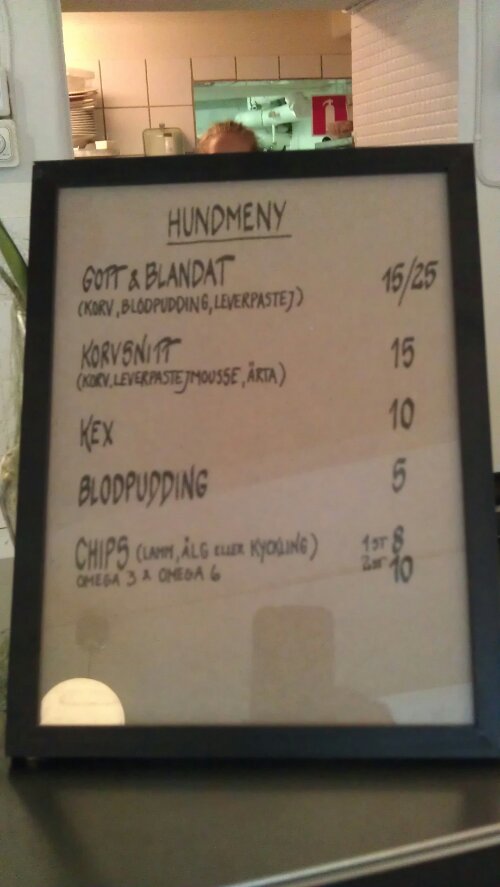 HUNDMENY
GOTT & BLANDAT 15/25
(KORV, BLODPUDDING, LEVERPASTEJ)
KORVSNITT 15
(KORV, LEVERPASTEJMOUSSE, ÄRTA)
KEX 10
BLODPUDDING 5
CHIPS (LAMM, ÄLG ELLER KYCKLING) 1 ST 8
OMEGA 3 & OMEGA 6 2 ST 10